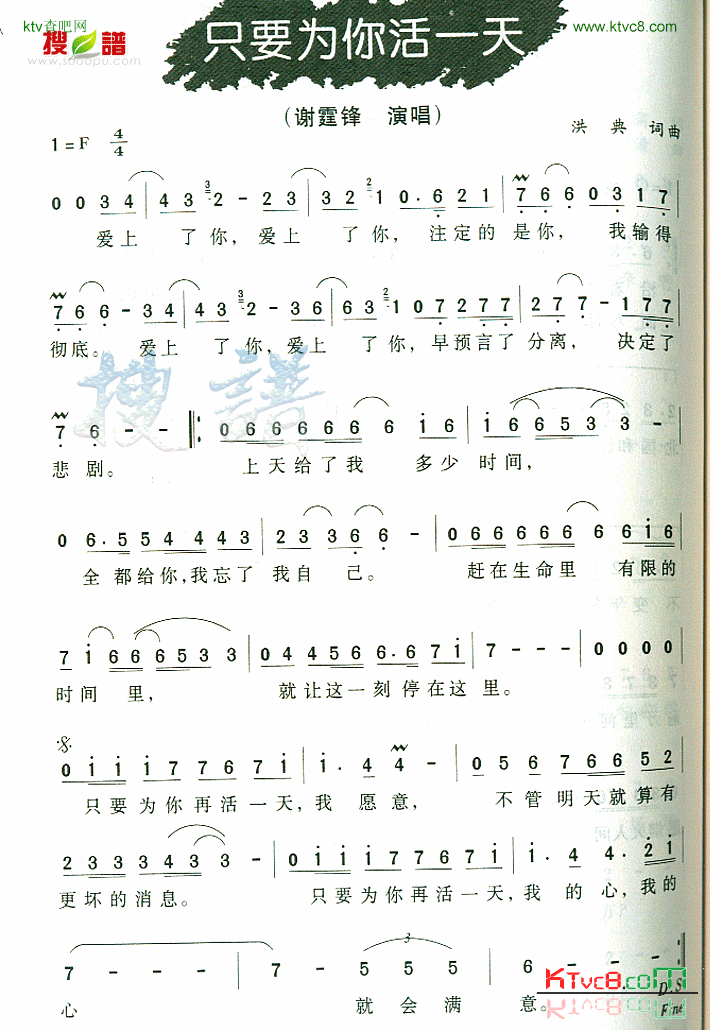 ktv查吧网
www.ktvc8.com
搜譜
www.sooopu.com
只要为你活一天
(谢霆锋 演唱)
洪典 词曲
1=F 4/4
0 0 3 4 | 4 3 3 2 - 2 3 | 3 2 2 1 0 . 6 2 1 | 7 6 6 0 3 1 7 |
爱上 了你, 爱上 了你, 注定的 是你, 我输得
7 6 6 - 3 4 | 4 3 3 2 - 3 6 | 6 3 2 1 0 7 2 7 7 | 2 7 7 - 1 7 7 |
彻底。 爱上 了你, 爱上 了你, 早预言了 分离, 决定了
7 6 - - ‖: 0 6 6 6 6 6 6 i 6 | i 6 6 6 5 3 3 - |
悲剧。 上天给了我 多少 时间,
0 6 . 5 5 4 4 4 3 | 2 3 3 6 6 - | 0 6 6 6 6 6 6 6 i 6 |
全都给你,我忘了 我自己。 赶在生命里 有限的
7 i 6 6 6 5 3 3 | 0 4 4 5 6 6 . 6 7 i | 7 - - - | 0 0 0 0 |
时间里, 就让这一刻停在这里。
0 i i i 7 7 6 7 i | i . 4 4 - | 0 5 6 7 6 6 5 2 |
只要为你再活一天,我 愿意, 不管明天就算有
2 3 3 3 3 4 3 3 - | 0 i i i 7 7 6 7 i | i . 4 4 . 2 i |
更坏的消息。 只要为你再活一天,我 的心,我的
7 - - - | 7 - 5 5 5 | 6 - - - :‖
3
心 就会满意。
KTvc8.com
D.S
Fine